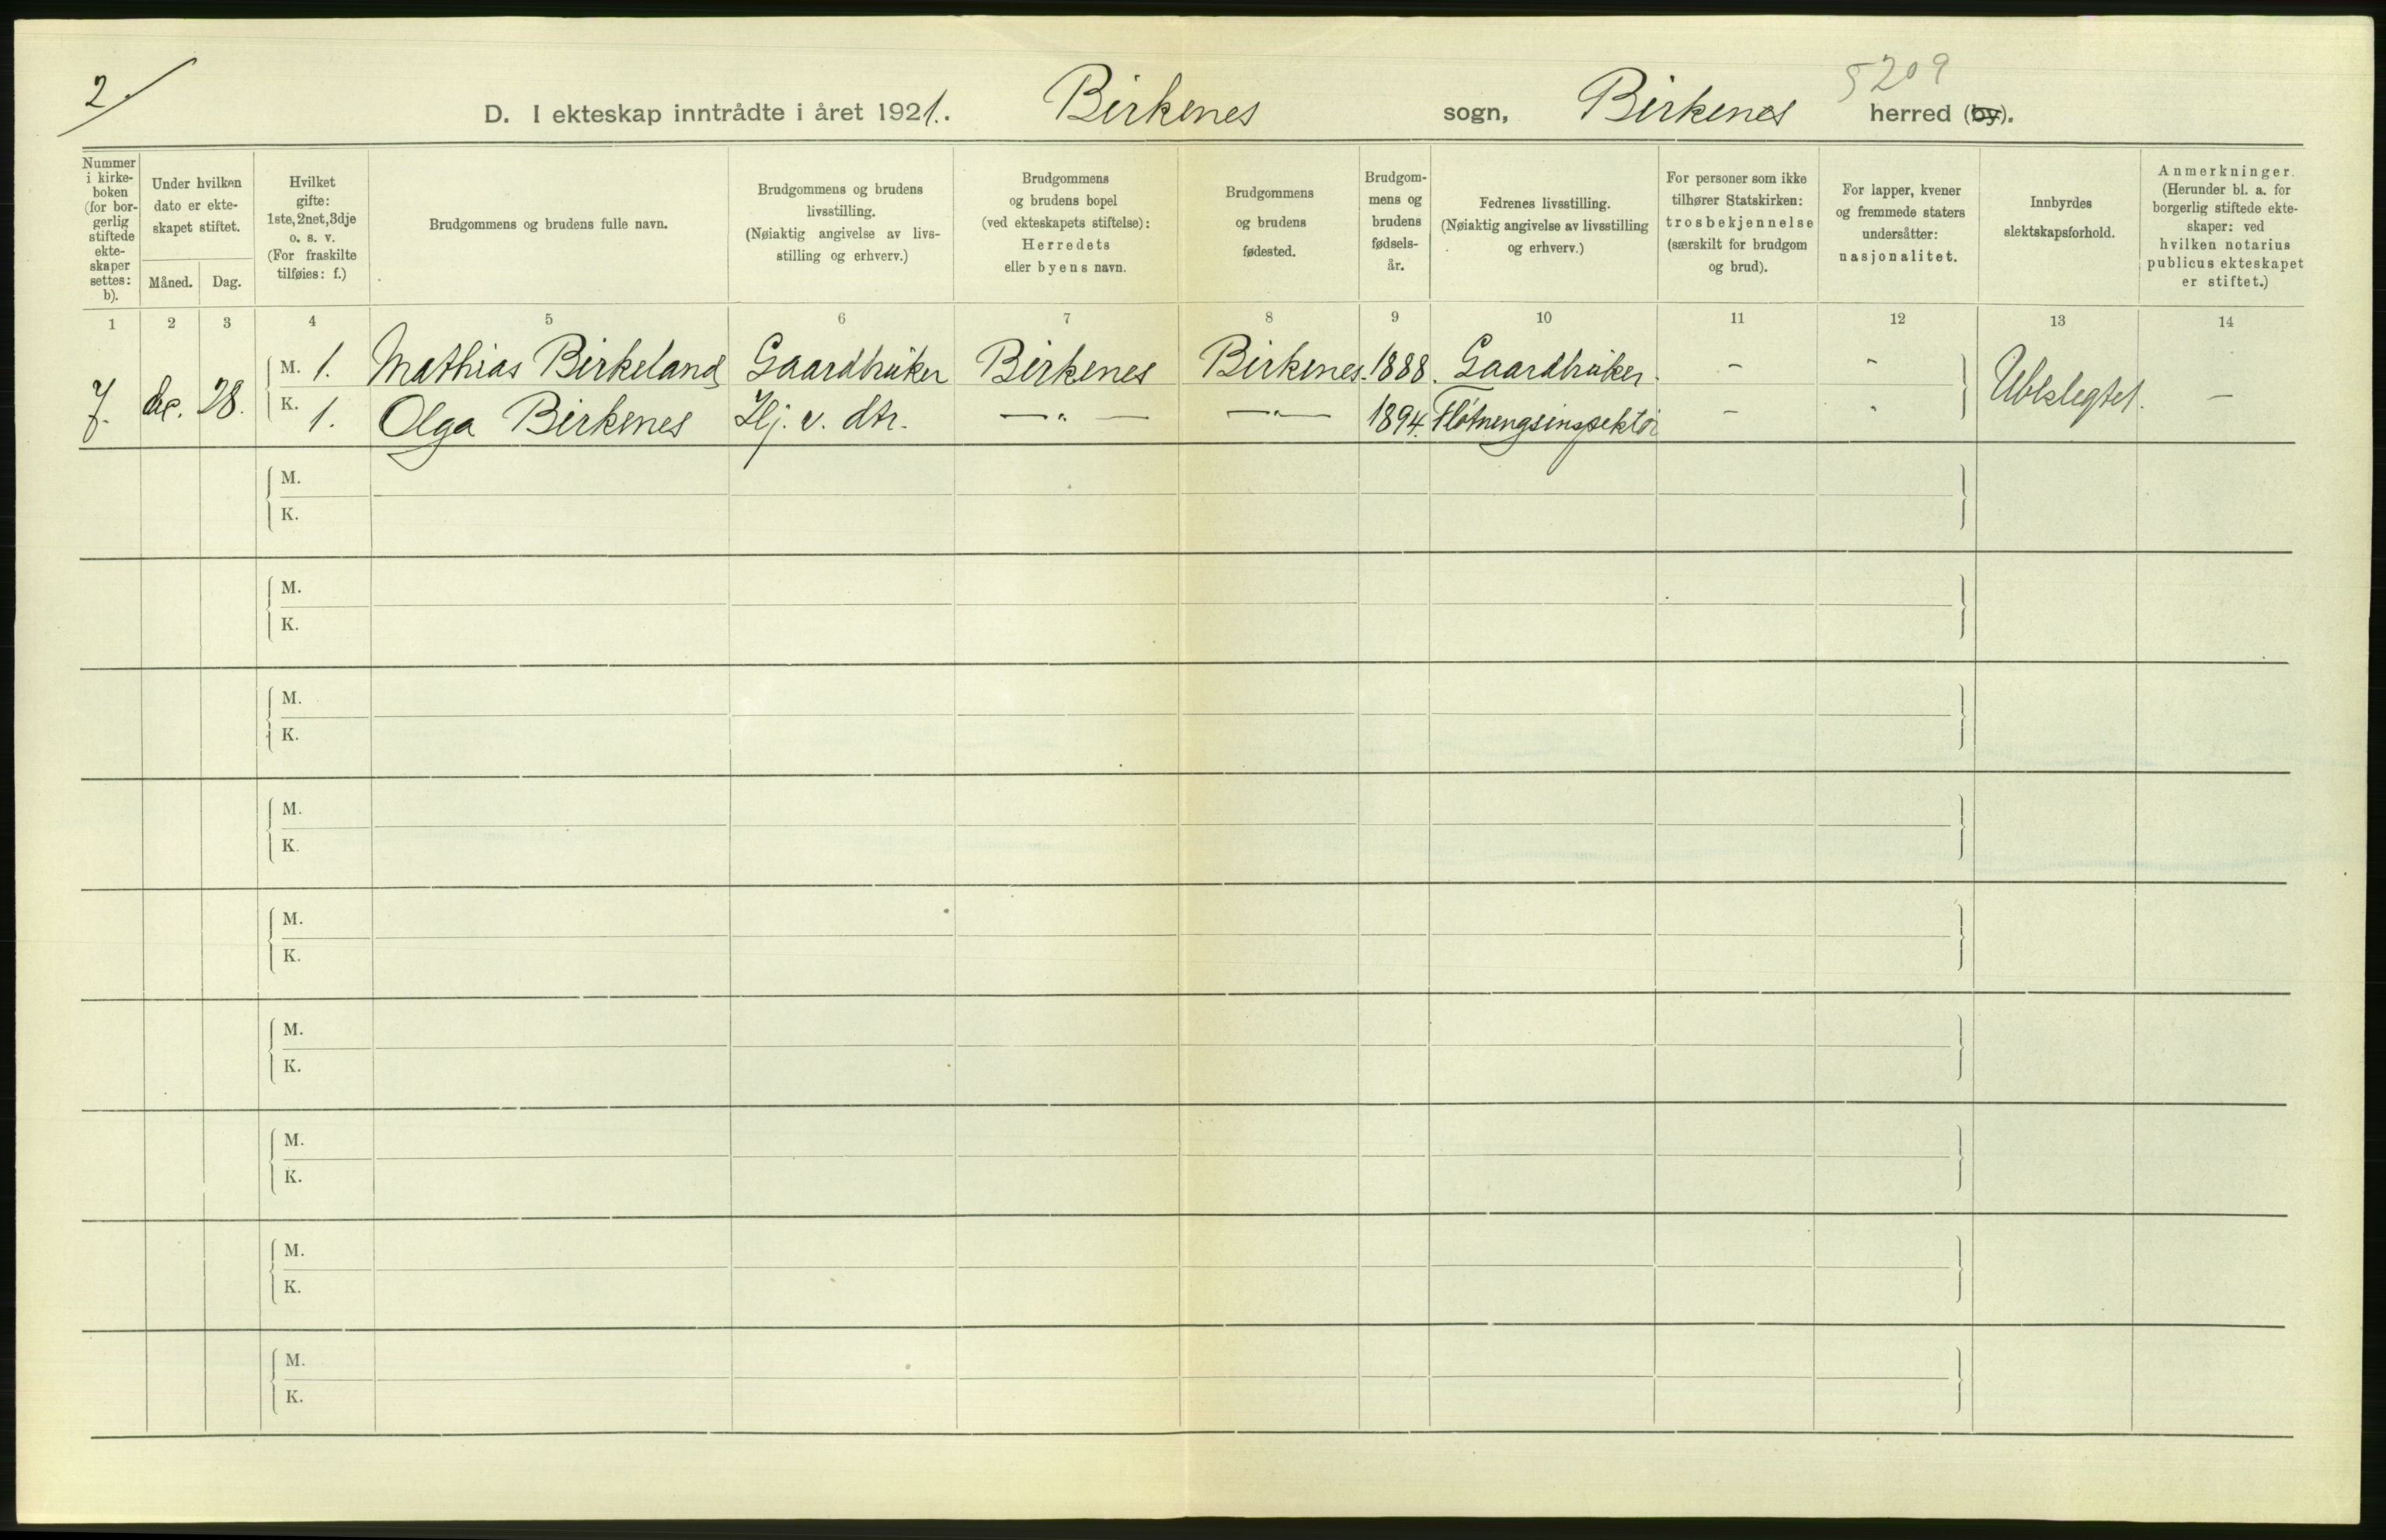 2.
5209
D. I ekteskap inntrådte i året 1921. Birkenes sogn, Birkenes herred (by).
Nummer
i kirke-
boken
(for bor-
gerlig
stiftede
ekte-
skaper
settes:
b).
Under hvilken
dato er ekte-
skapet stiftet.
Måned. Dag.
Hvilket
gifte:
1ste, 2net, 3dje
o. s. v.
(For fraskilte
tilføies: f.)
Brudgommens og brudens fulle navn.
Brudgommens og brudens
livsstilling.
(Nøiaktig angivelse av livs-
stilling og erhverv.)
Brudgommens
og brudens bopel
(ved ekteskapets stiftelse):
Herredets
eller byens navn.
Brudgommens
og brudens
fødested.
Brudgom-
mens og
brudens
fødsels-
år.
Fedrenes livsstilling.
(Nøiaktig angivelse av livsstilling
og erhverv.)
For personer som ikke
tilhører Statskirken:
trosbekjennelse
(særskilt for brudgom
og brud).
For lapper, kvener
og fremmede staters
undersåtter:
nasjonalitet.
Innbyrdes
slektskapsforhold.
Anmerkninger.
(Herunder bl. a. for
borgerlig stiftede ekte-
skaper: ved
hvilken notarius
publicus ekteskapet
er stiftet.)
1 2 3 4 5 6 7 8 9 10 11 12 13 14
7. de. 28. M. 1. Mathias Birkeland Gaardbruker Birkenes Birkenes. 1888. Gaardbruker. - - Ubeslegtet. —
K. 1. Olga Birkenes Hj. v. dtr. — " — — " — 1894. Fløtningsinspektør - "
M.
K.
M.
K.
M.
K.
M.
K.
M.
K.
M.
K.
M.
K.
M.
K.
M.
K.